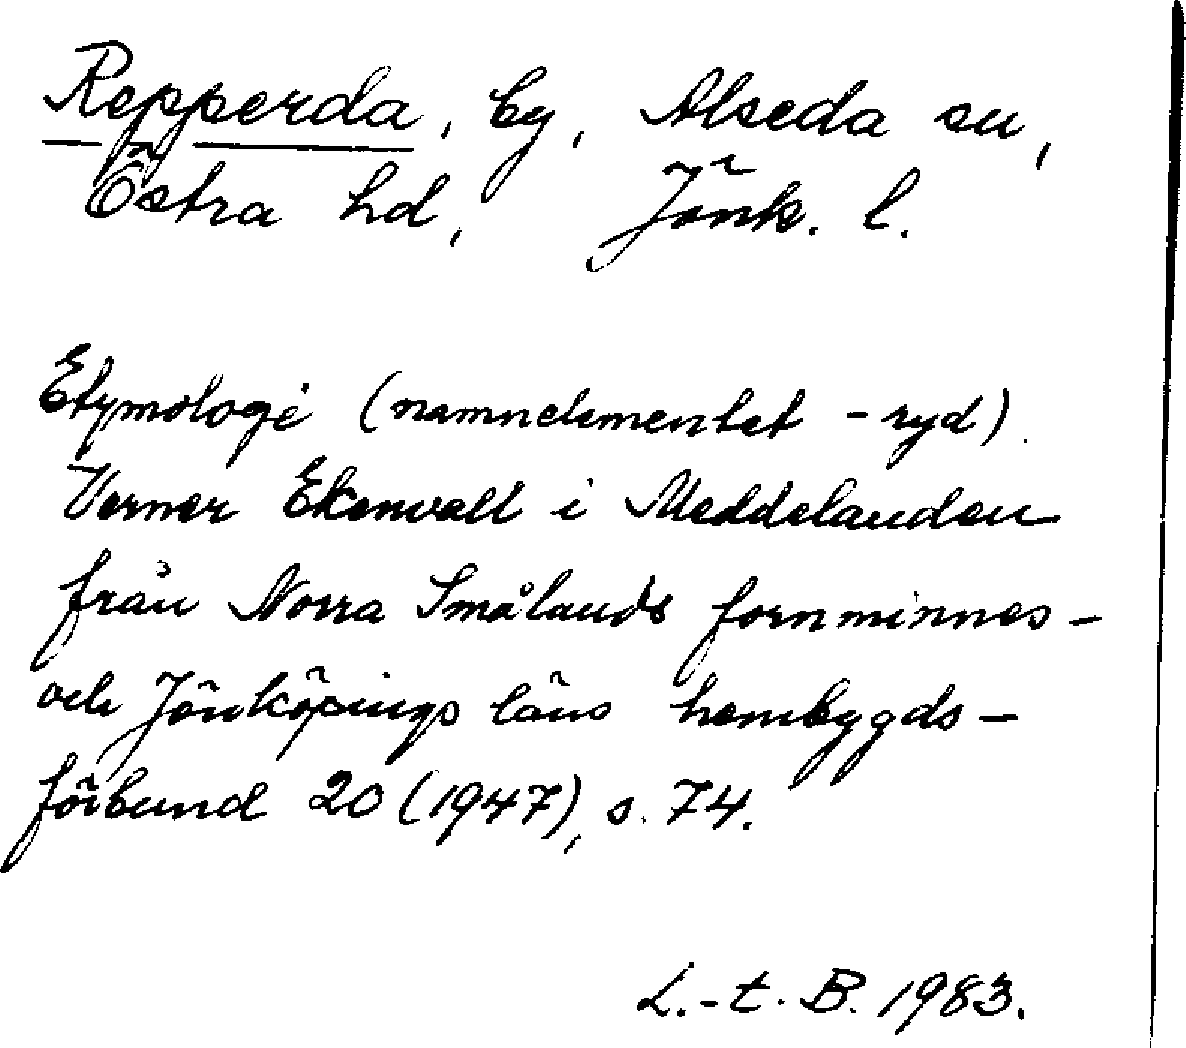 Repperda, by, Alseda sn,
Östra hd, Jönk. l.
Etymologi (namnelementet -ryd).
Verner Ekenvall i Meddelanden
från Norra Smålands fornminnes-
och Jönköpings läns hembygds-
förbund 20 (1947), s. 74.
L.-t. B. 1983.